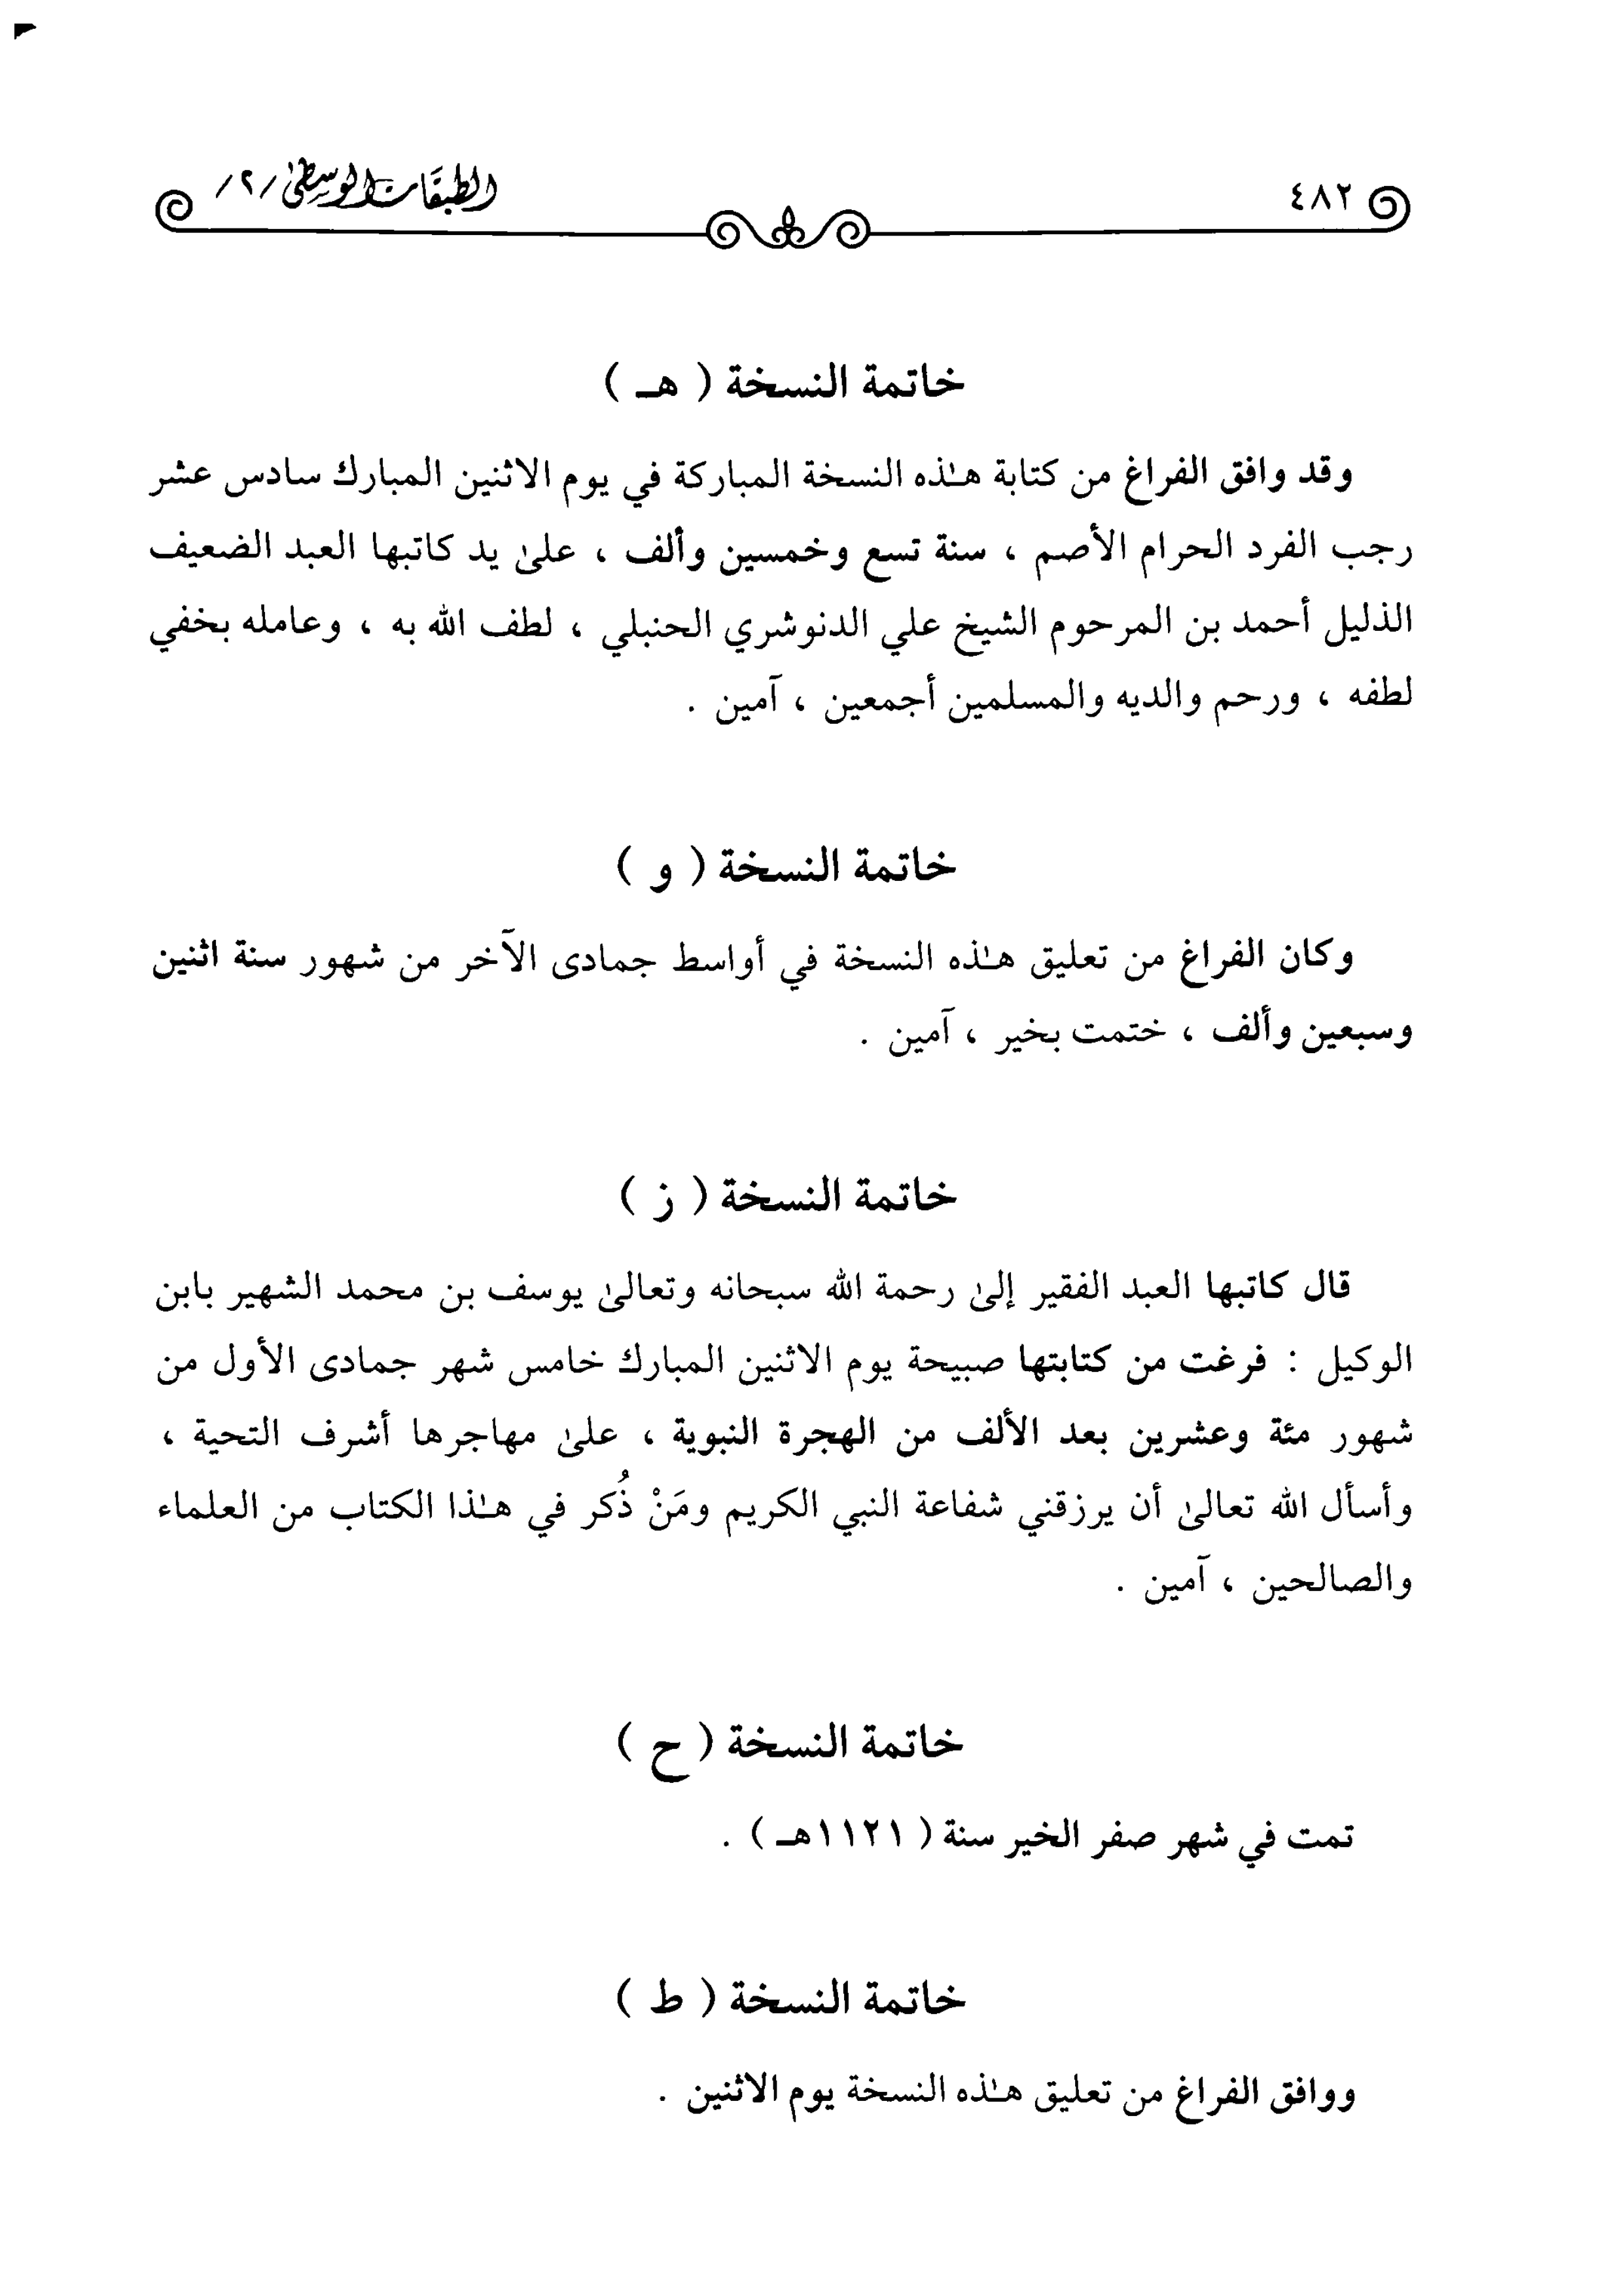 ٤٨٢
الطبقات الوسطىٰ /٢/
خاتمة النسخة ( هـ )
وقد وافق الفراغ من كتابة هـٰذه النسخة المباركة في يوم الاثنين المبارك سادس عشر
رجب الفرد الحرام الأصم ، سنة تسع وخمسين وألف ، علىٰ يد كاتبها العبد الضعيف
الذليل أحمد بن المرحوم الشيخ علي الدنوشري الحنبلي ، لطف الله به ، وعامله بخفي
لطفه ، ورحم والديه والمسلمين أجمعين ، آمين .
خاتمة النسخة ( و )
وكان الفراغ من تعليق هـٰذه النسخة في أواسط جمادى الآخر من شهور سنة اثنين
وسبعين وألف ، ختمت بخير ، آمين .
خاتمة النسخة ( ز )
قال كاتبها العبد الفقير إلىٰ رحمة الله سبحانه وتعالىٰ يوسف بن محمد الشهير بابن
الوكيل : فرغت من كتابتها صبيحة يوم الاثنين المبارك خامس شهر جمادى الأول من
شهور مئة وعشرين بعد الألف من الهجرة النبوية ، علىٰ مهاجرها أشرف التحية ،
وأسأل الله تعالىٰ أن يرزقني شفاعة النبي الكريم ومَنْ ذُكر في هـٰذا الكتاب من العلماء
والصالحين ، آمين .
خاتمة النسخة ( ح )
تمت في شهر صفر الخير سنة ( ١١٢١هـ ) .
خاتمة النسخة ( ط )
ووافق الفراغ من تعليق هـٰذه النسخة يوم الاثنين .